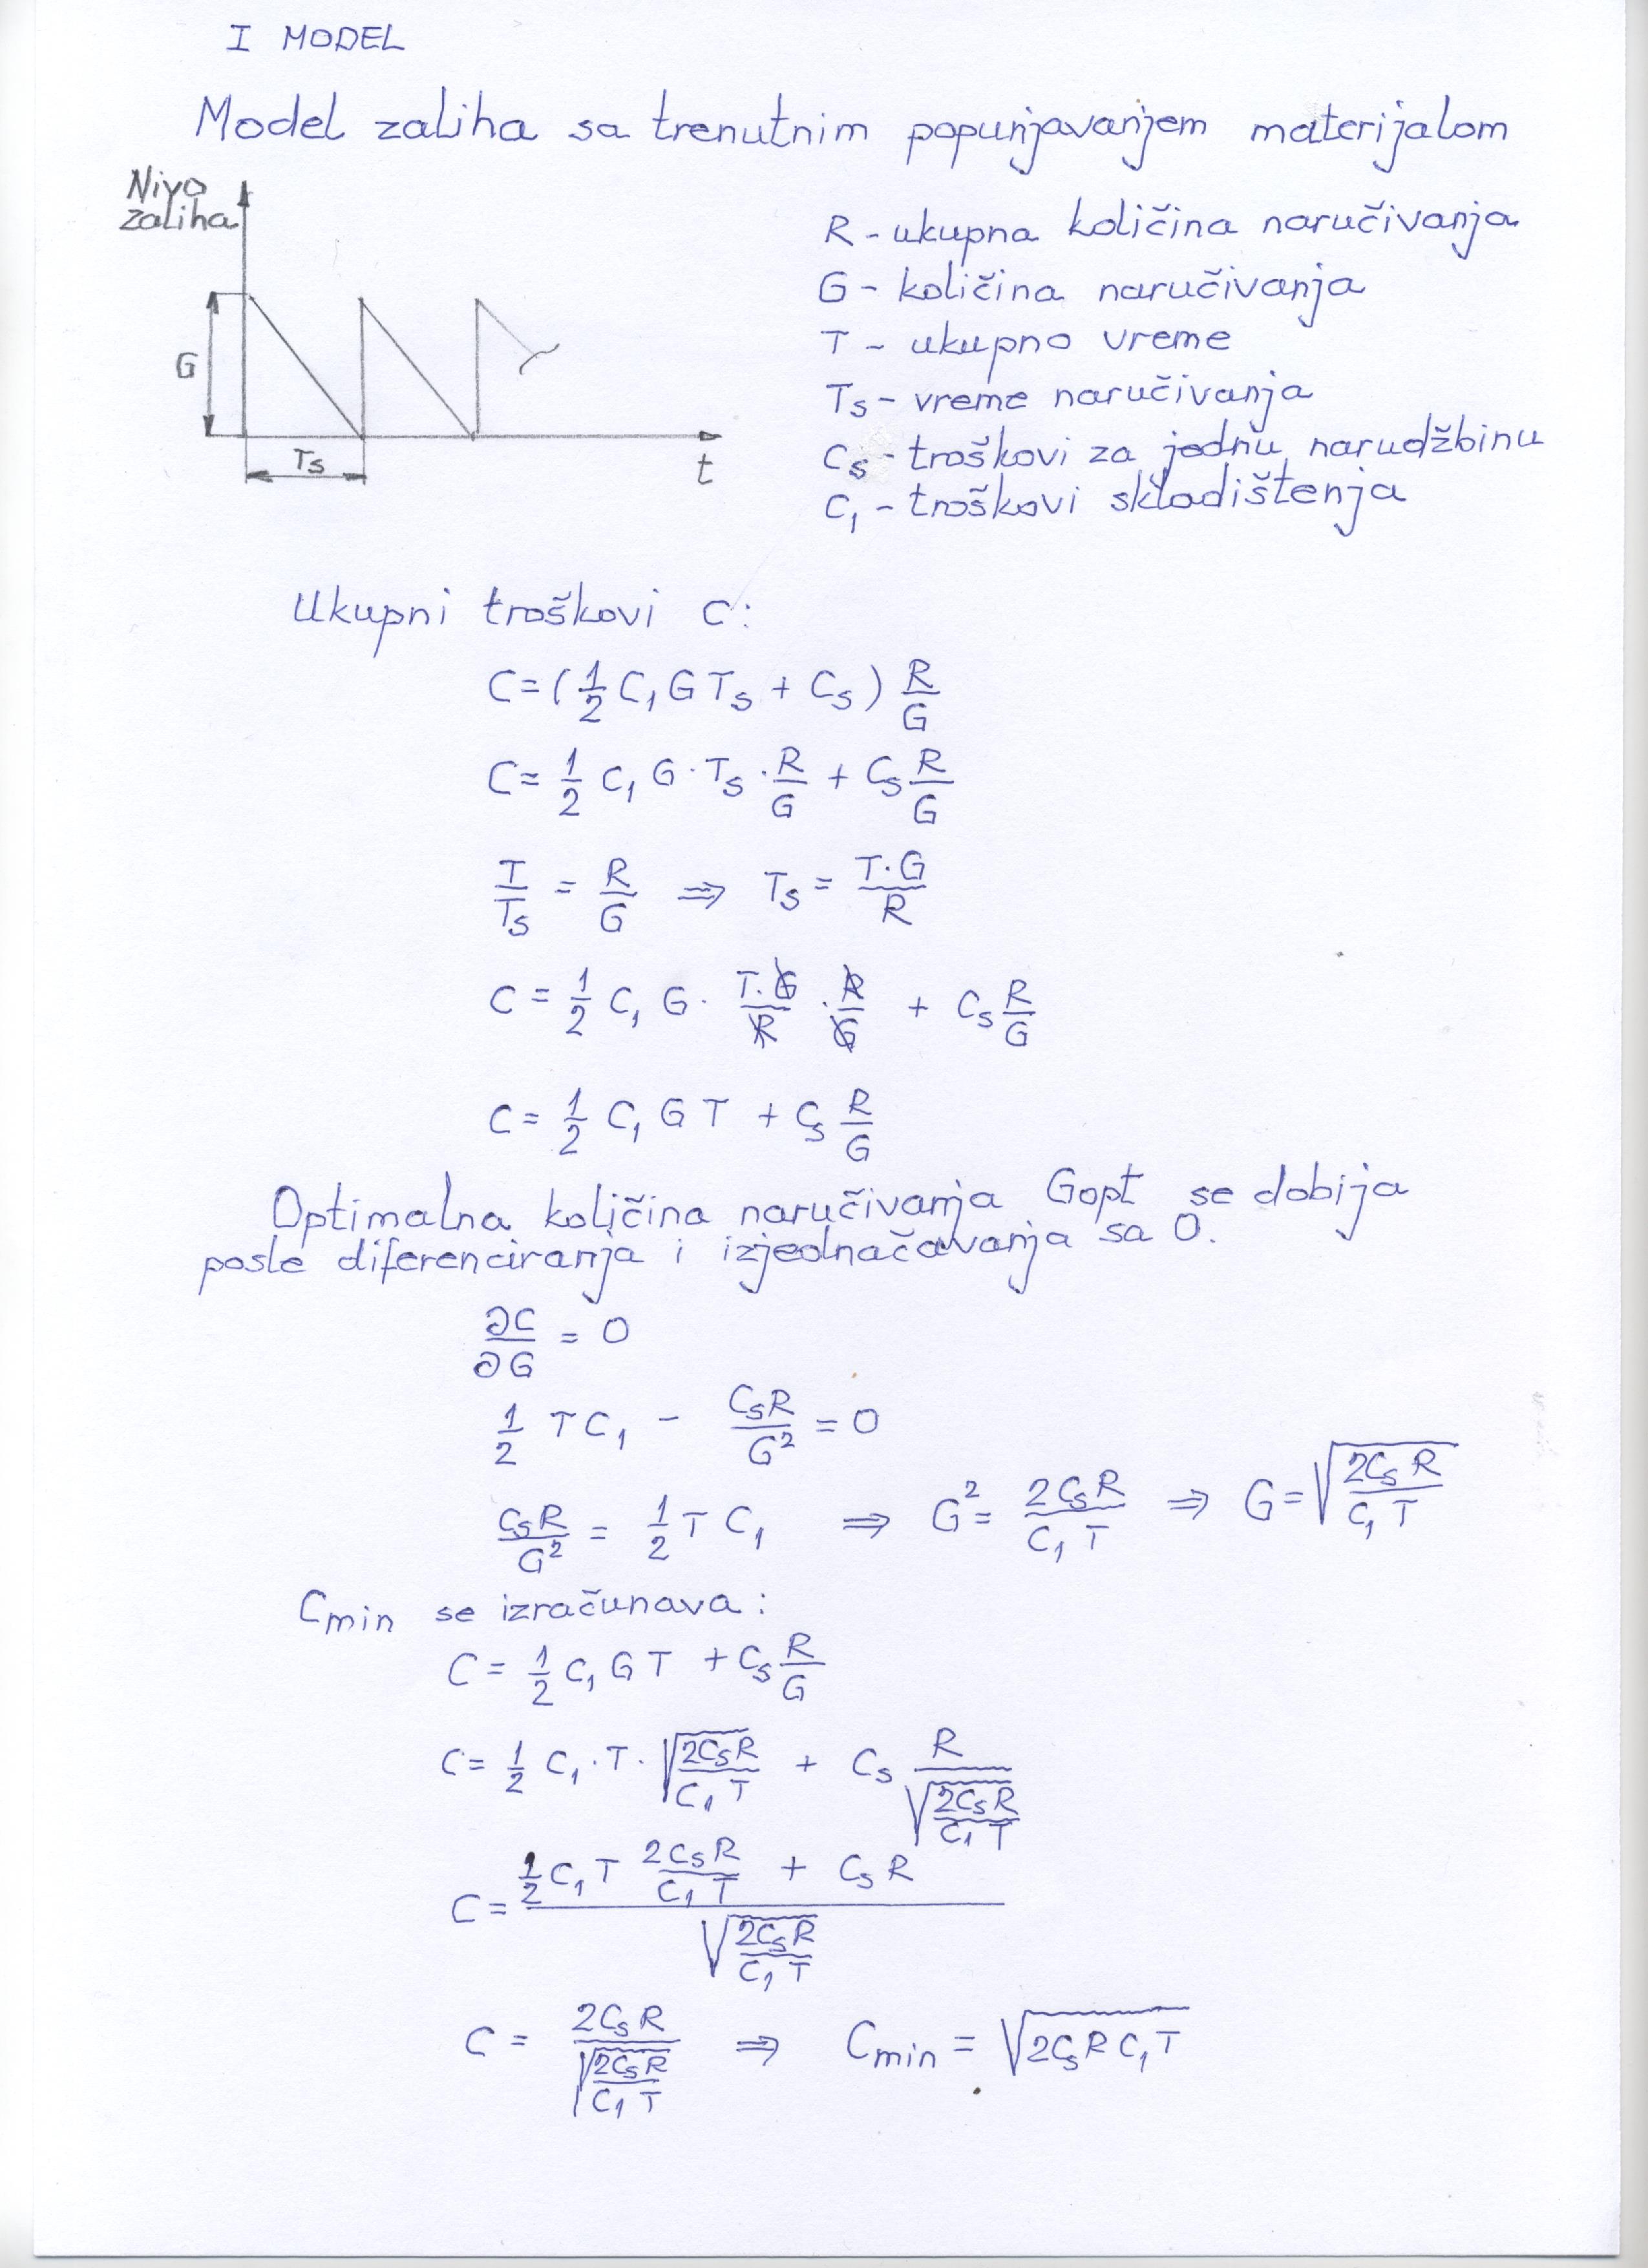 I MODEL
Model zaliha sa trenutnim popunjavanjem materijalom
Nivo
zaliha
G
Ts
t
R - ukupna količina naručivanja
G - količina naručivanja
T - ukupno vreme
Ts - vreme naručivanja
Cs - troškovi za jednu narudžbinu
C₁ - troškovi skladištenja
Ukupni troškovi C:
C = (1/2 C₁ G Ts + Cs) R/G
C = 1/2 C₁ G · Ts · R/G + Cs R/G
T/Ts = R/G ⇒ Ts = T·G/R
C = 1/2 C₁ G · T·G/R · R/G + Cs R/G
C = 1/2 C₁ G T + Cs R/G
Optimalna količina naručivanja Gopt se dobija
posle diferenciranja i izjednačavanja sa 0.
∂C/∂G = 0
1/2 T C₁ - CsR/G² = 0
CsR/G² = 1/2 T C₁ ⇒ G² = 2CsR/C₁T ⇒ G = √(2CsR/C₁T)
Cmin se izračunava:
C = 1/2 C₁ G T + Cs R/G
C = 1/2 C₁ · T · √(2CsR/C₁T) + Cs R/√(2CsR/C₁T)
C = (1/2 C₁ T 2CsR/C₁T + CsR)/√(2CsR/C₁T)
C = 2CsR/√(2CsR/C₁T) ⇒ Cmin = √(2CsRC₁T)